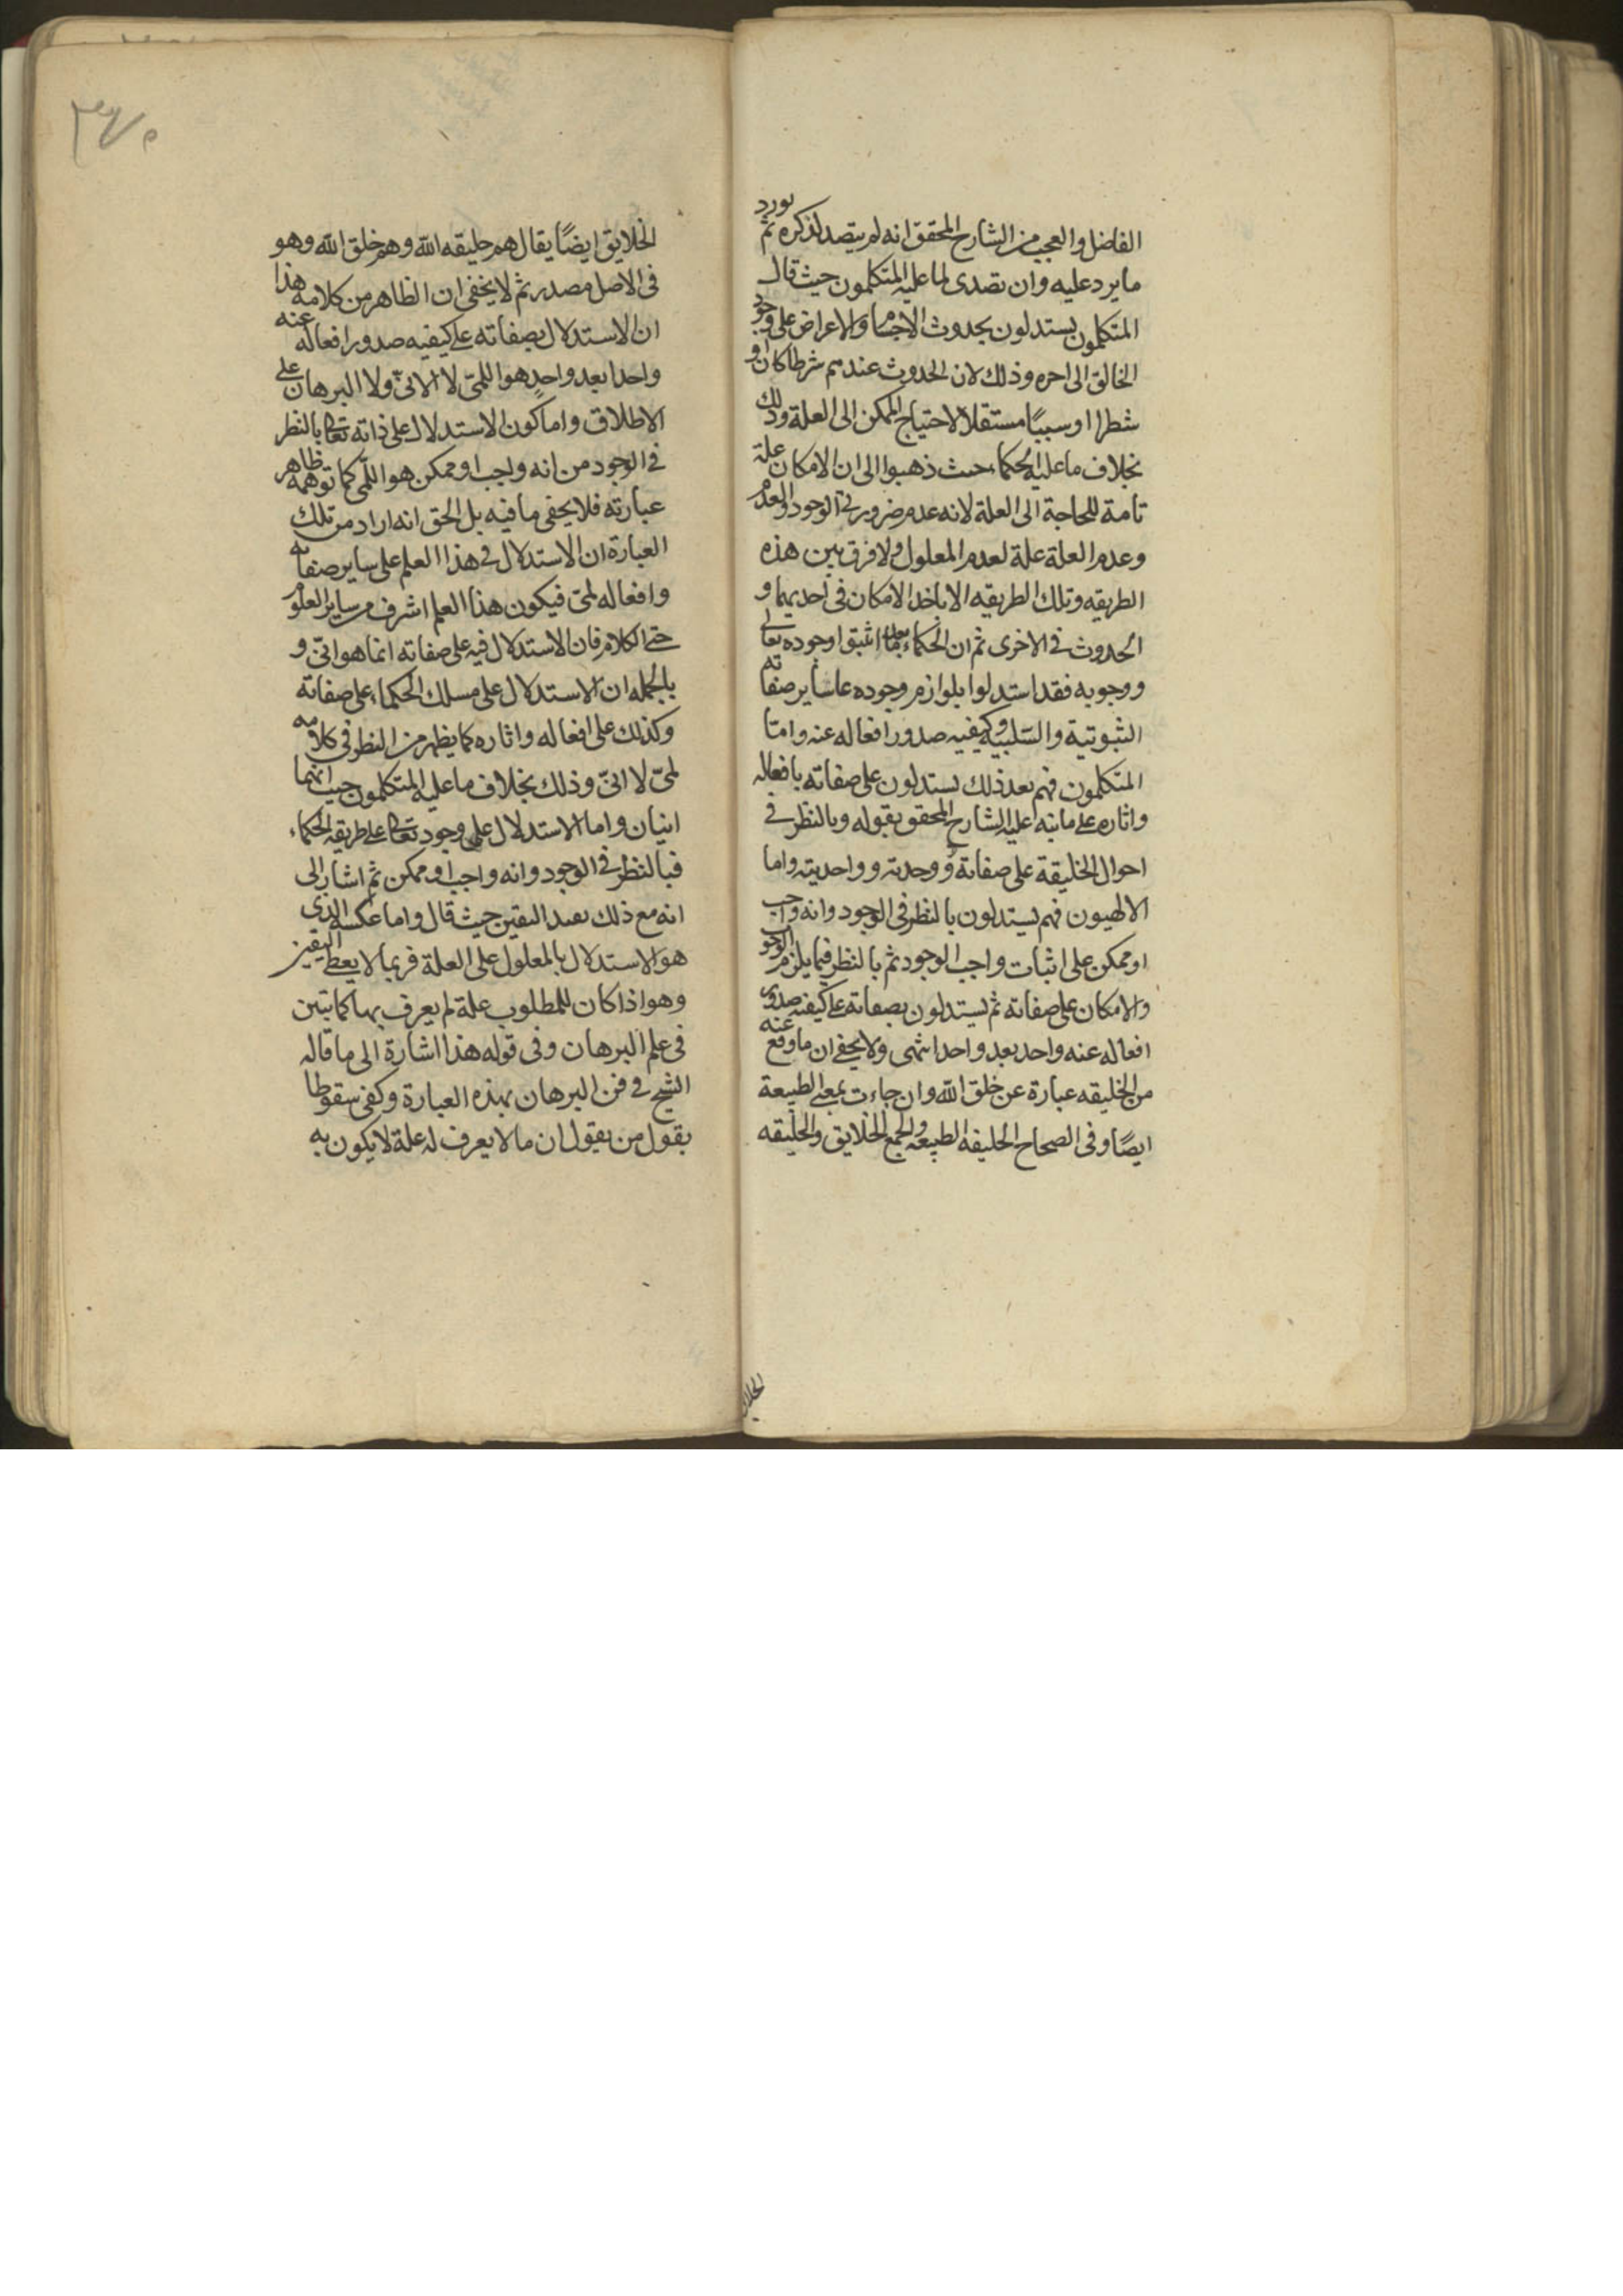 الفاضل والعجب من الشارح المحقق انه لم يتصد لذكره ثم يورد
ما يرد عليه وان تصدى لما عليه المتكلمون حيث قال
المتكلمون يستدلون بحدوث الاجسام والاعراض على وجود
الخالق الى اخره وذلك لان الحدوث عندهم شرطا كان او
شطرا او سببًا مستقلا لاحتياج الممكن الى العلة وذلك
بخلاف ما عليه الحكماء حيث ذهبوا الى ان الامكان علة
تامة للحاجة الى العلة لانه عدم ضرورتي الوجود والعدم
وعدم العلة علة لعدم المعلول ولا فرق بين هذه
الطريقه وتلك الطريقه الا باخذ الامكان في احديهما و
الحدوث في الاخرى ثم ان الحكماء بعد ما اثبتوا وجوده تعالى
ووجوبه فقد استدلوا بلوازم وجوده على ساير صفاته
الثبوتية والسلبيه وكيفيه صدور افعاله عنه وامّا
المتكلمون فهم بعد ذلك يستدلون على صفاته بافعاله
واثاره على ما نبه عليه الشارح المحقق بقوله وبالنظر في
احوال الخليقة على صفاته ووحدته وواحديته واما
الالهيون فهم يستدلون بالنظر في الوجود وانه واجب
او ممكن على اثبات واجب الوجود ثم بالنظر فيما يلزم الوجود
والامكان على صفاته ثم يستدلون بصفاته على كيفيه صدور
افعاله عنه واحد بعد واحد انتهى ولا يخفى ان ما وقع عنه
من الخليقه عبارة عن خلق الله وان جاءت بمعنى الطبيعة
ايضًا وفي الصحاح الخليفه الطبيعه والجمع الخلايق والخليقه
الخلايق
الخلايق ايضًا يقال هم خليقه الله وهم خلق الله وهو
في الاصل مصدر ثم لا يخفى ان الظاهر من كلامه هذا
ان الاستدلال بصفاته على كيفيه صدور افعاله عنه
واحدا بعد واحدٍ هو اللمّى لا الانىّ ولا البرهان على
الاطلاق واما كون الاستدلال على ذاته تعالى بالنظر
في الوجود من انه واجب او ممكن هو اللّمى كما توهمه ظاهر
عبارته فلا يخفى ما فيه بل الحق انه اراد من تلك
العبارة ان الاستدلال في هذا العلم على ساير صفاته
وافعاله لمّى فيكون هذا العلم اشرف من ساير العلوم
حتى الكلام فان الاستدلال فيه على صفاته انما هو انىّ و
بالجمله ان الاستدلال على مسلك الحكماء على صفاته
وكذلك على افعاله واثاره كما يظهر من النظر في كلامه
لمىّ لا انىّ وذلك بخلاف ما عليه المتكلمون حيث انهما
انيان واما الاستدلال على وجود تعالى على طريقه الحكماء
فبالنظر في الوجود وانه واجب او ممكن ثم اشار الى
انه مع ذلك يفيد اليقين حيث قال واما عكسه الذي
هو الاستدلال بالمعلول على العلة فربما لا يعطى اليقين
وهو اذا كان للمطلوب علة لم يعرف بها كما تبين
في علم البرهان وفي قوله هذا اشارة الى ما قاله
الشيخ في فن البرهان بهذه العبارة وكفى سقوطا
بقول من يقول ان ما لا يعرف له علة لا يكون به